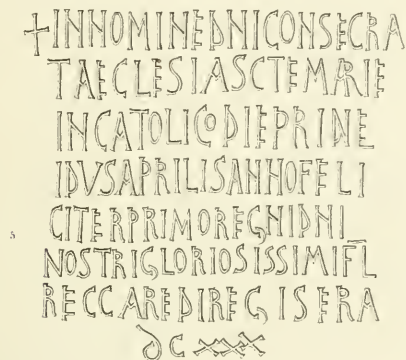 +INNOMINEDNICONSECRA
TAECLESIASCTEMARIE
INCATOLICODIEPRIDIE
IDVSAPRILISANNOFELI
5 CITERPRIMOREGNIDNI
NOSTRIGLORIOSISSIMIFL
RECCAREDIREGISERA
DC XXX